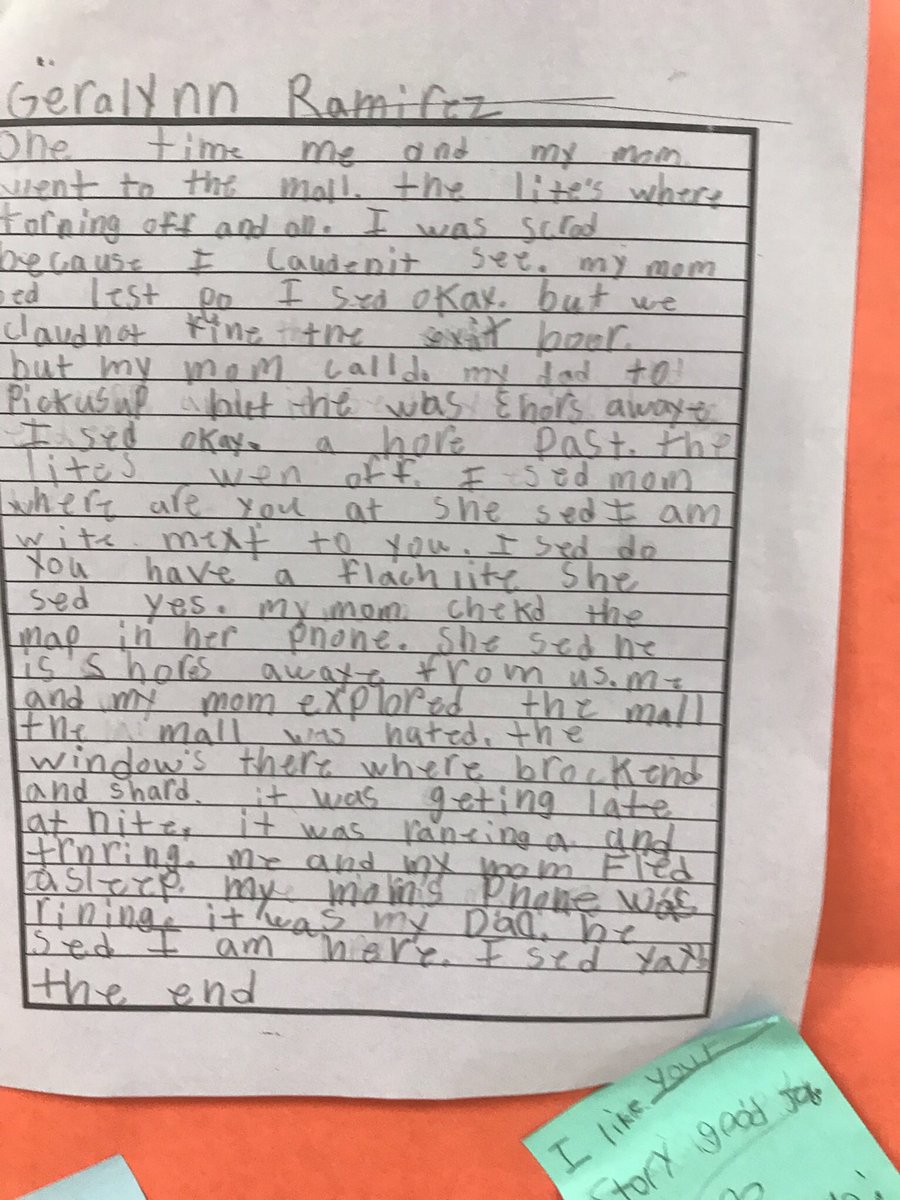 Geralynn Ramirez
one time me and my mom
went to the mall. the lite's where
torning off and on. I was scrod
because I caudenit see. my mom
sed lest go I sed okay. but we
claudnot fine the exit boor.
but my mom calld. my dad to
Pickusup but he was 5hors awaye
I sed okay. a hore Past. the
lites wen off. I sed mom
where are you at she sed I am
write mext to you. I sed do
you have a flachlite she
sed yes. my mom chekd the
map in her phone. She sed he
is 5 hores awaye from us. me
and my mom explored the mall
the mall was hated. the
window's there where brockend
and shard. it was geting late
at nite. it was raneing a and
trnring. me and my mom Fled
asleep. my mom's Phone was
rining. it was my Dad. he
sed I am here. I sed yay
the end
I like your
story good job